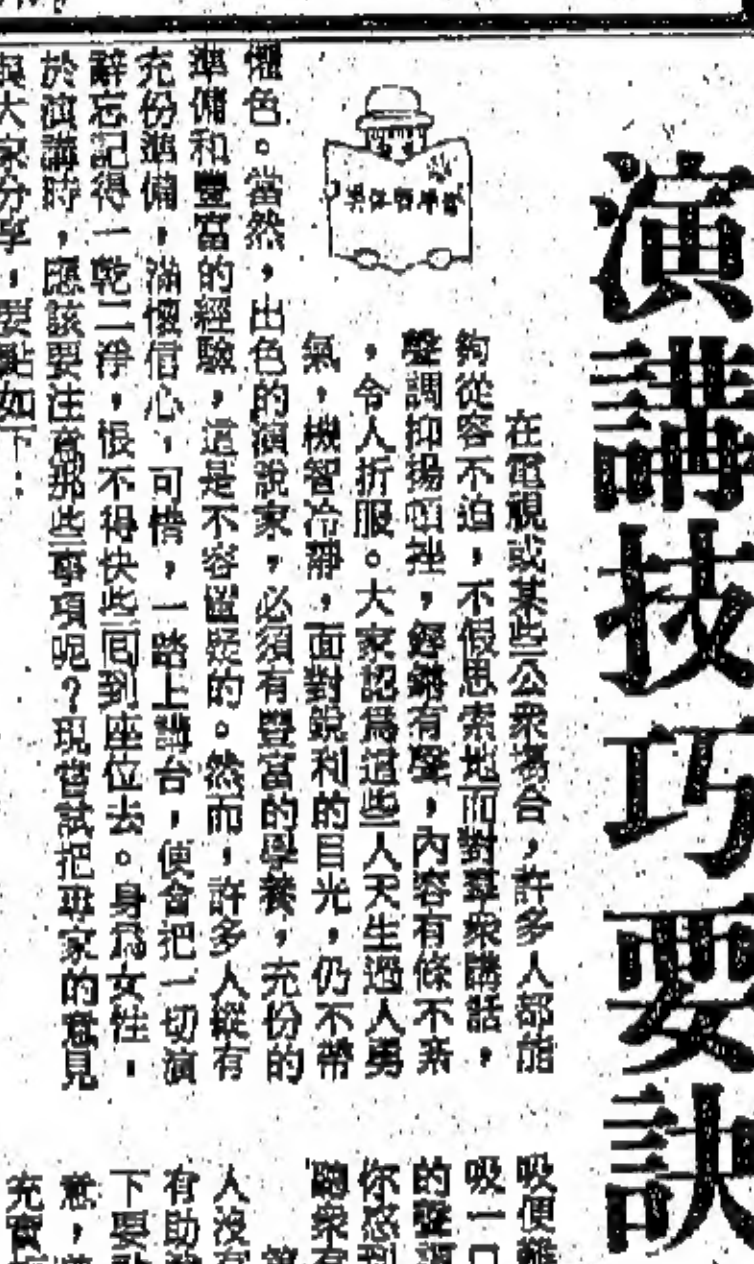 演講技巧要訣
在電視或某些公衆場合，許多人都能
夠從容不迫，不假思索地面對羣衆講話，
聲調抑揚頓挫，鏗鏘有聲，內容有條不紊
，令人折服。大家認爲這些人天生過人勇
氣，機智冷靜，面對銳利的目光，仍不帶
懼色。當然，出色的演說家，必須有豐富的學養，充份的
準備和豐富的經驗，這是不容置疑的。然而，許多人縱有
充份準備，滿懷信心，可惜，一踏上講台，便會把一切演
辭忘記得一乾二淨，恨不得快些回到座位去。身爲女性，
於演講時，應該要注意那些事項呢？現嘗試把專家的意見
與大家分享，要點如下：
吸便難
吸一口
的聲調
你感到
聽衆有
人沒有
有助
下要
意，
充實